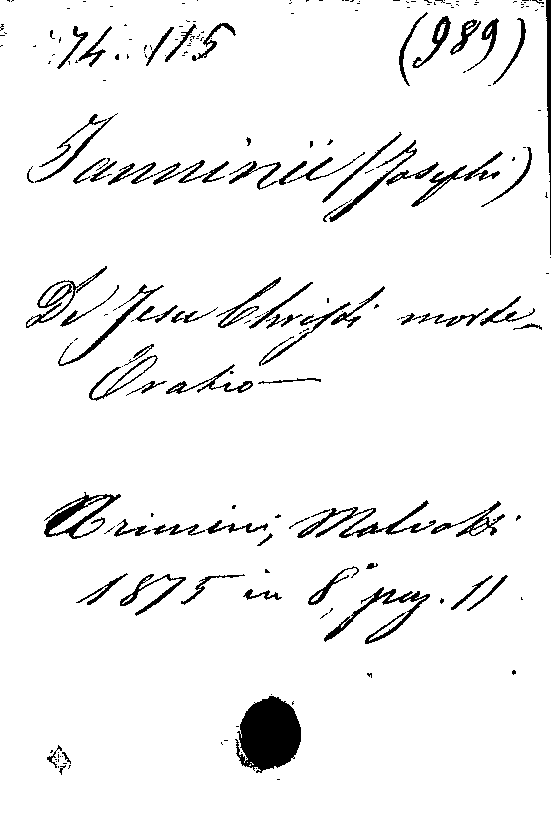 74. 115 (989)
Janninii (Josephi)
De Jesu Christi morte
Oratio
Arimini, Malvolti
1875 in 8°, pag. 11